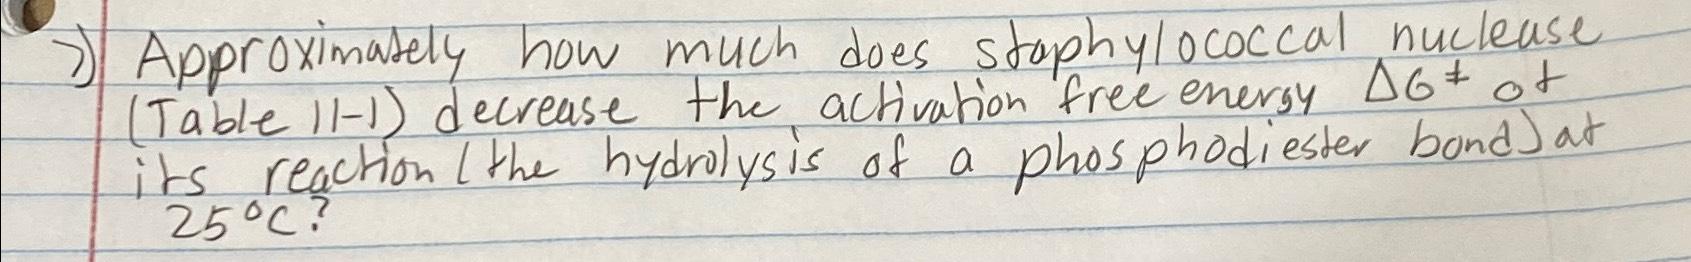 7) Approximately how much does staphylococcal nuclease
(Table 11-1) decrease the activation free energy ΔG‡ of
its reaction (the hydrolysis of a phosphodiester bond) at
25°C?